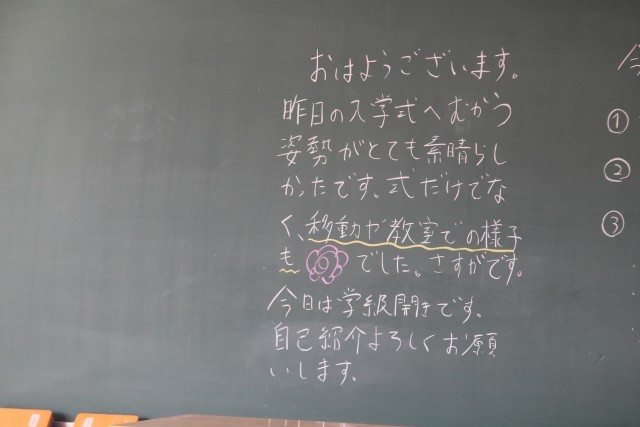 おはようございます。
昨日の入学式へむかう
姿勢がとても素晴らし
かったです。式だけでな
く、移動や教室での様子
も でした。さすがです。
今日は学級開きです。
自己紹介よろしくお願
いします。
今
①
②
③